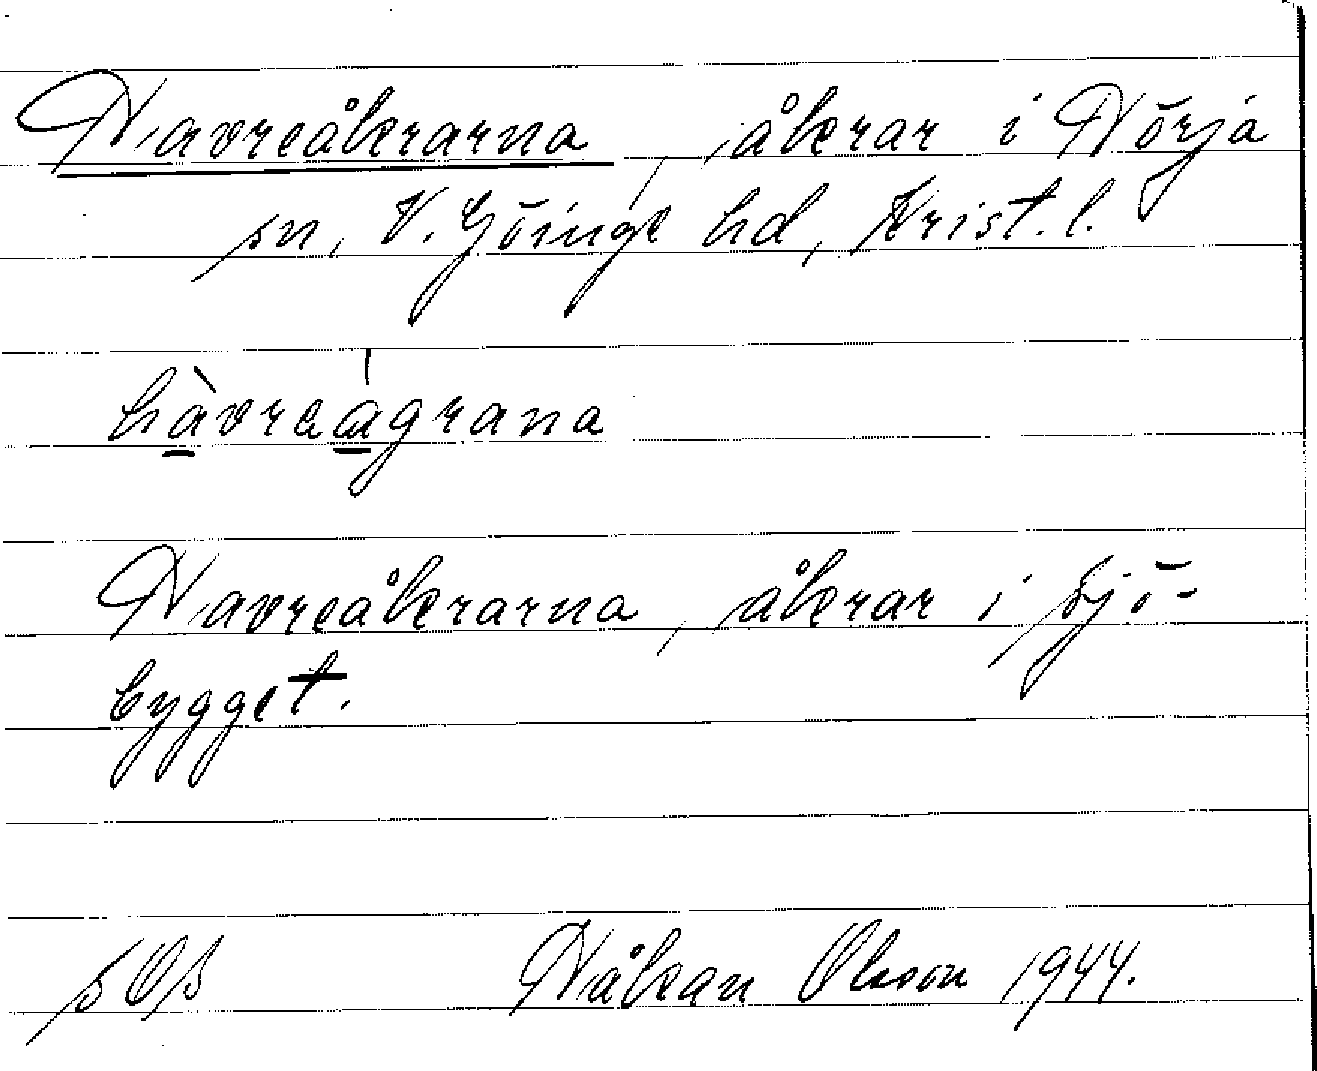 Havreåkrarna, åkrar i Hörja
sn, V. Göinge hd, Krist. l.
hàvreagrana
Havreåkrarna, åkrar i Sjö-
bygget.
Håkan Olsson 1944.